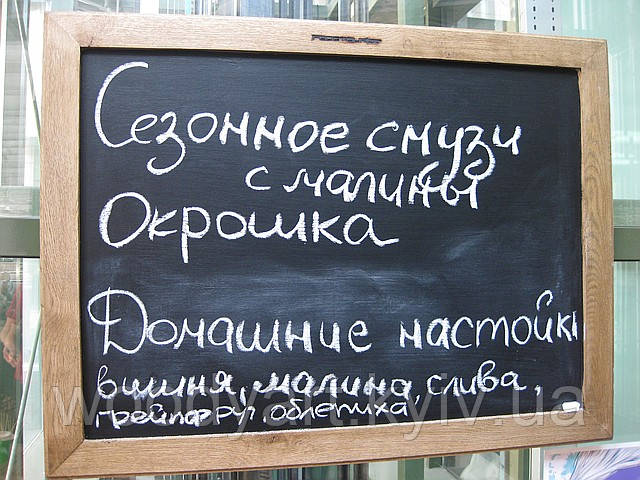 Сезонное смузи
с малины
Окрошка
Домашние настойки
вишня, малина, слива,
грейпфрут, облепиха
woodyart.kyiv.ua